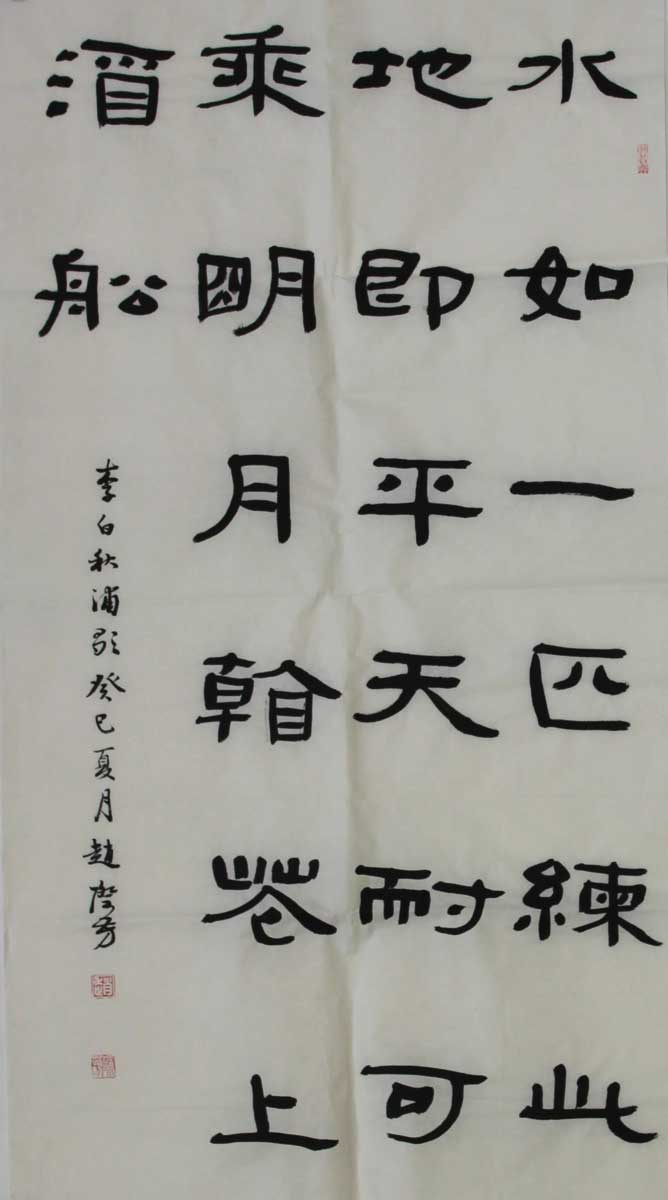 水如一匹練此
地即平天耐可
乘明月看花上
酒船
李白秋浦歌癸巳夏月趙芳